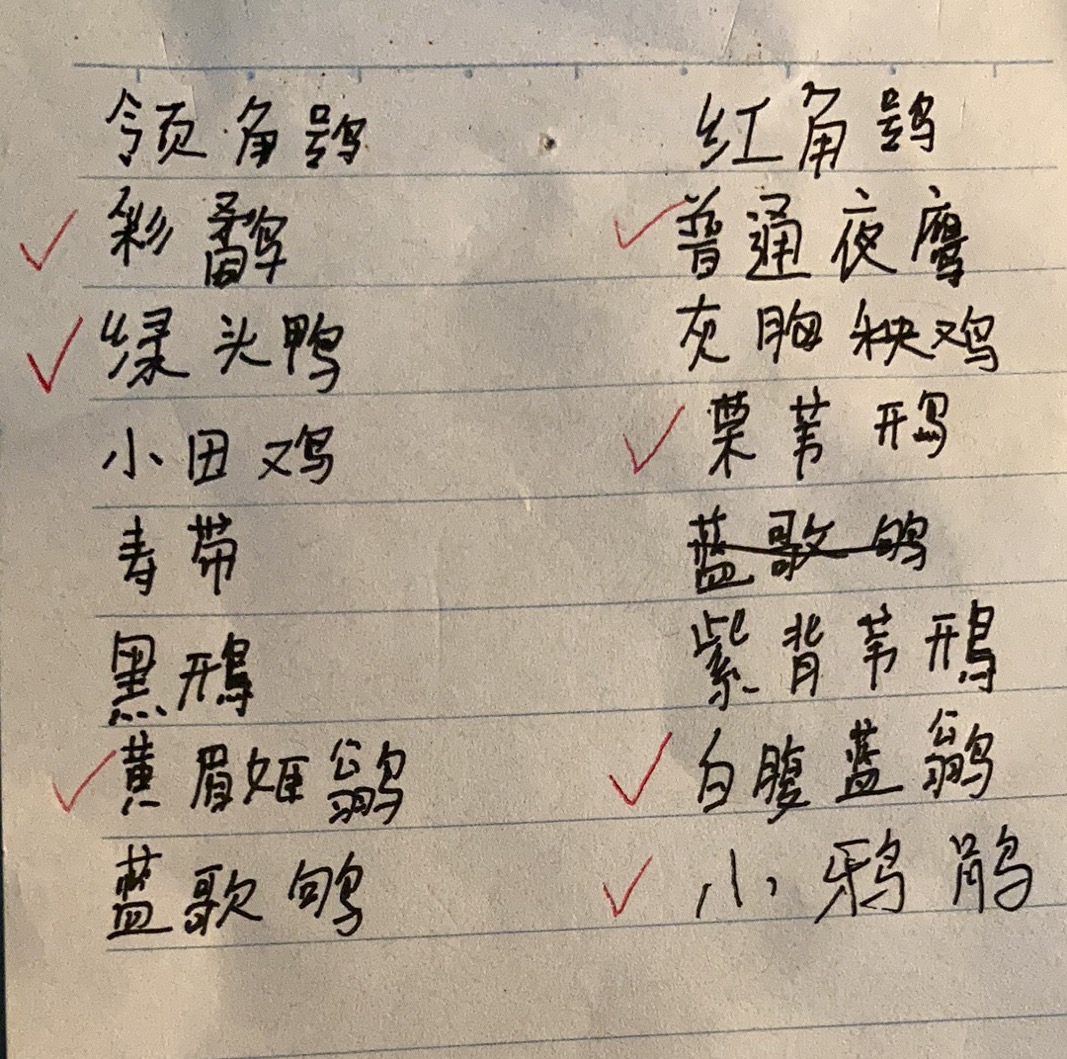 领角鸮 红角鸮
彩鹬 普通夜鹰
绿头鸭 灰胸秧鸡
小田鸡 栗苇鳽
寿带 蓝歌鸲
黑鳽 紫背苇鳽
黄眉姬鹟 白腹蓝鹟
蓝歌鸲 小鸦鹃